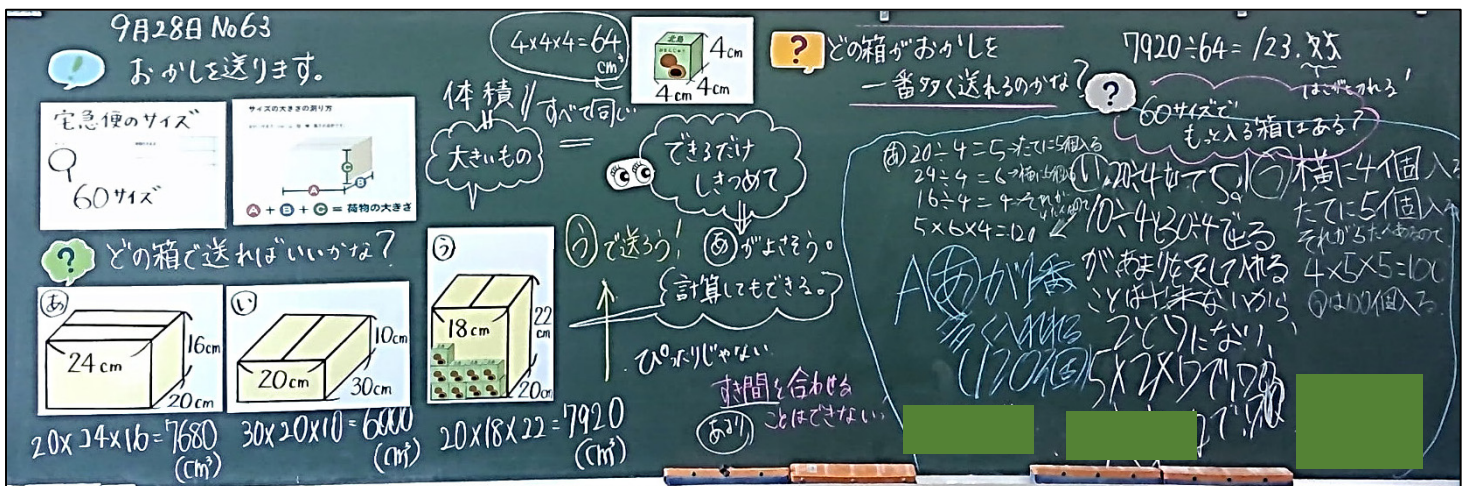 9月28日 No63
おかしを送ります。
宅急便のサイズ
60サイズ
サイズの大きさの測り方
A
B
C
A + B + C = 荷物の大きさ
どの箱で送ればいいかな?
あ
24cm
16cm
20cm
20×24×16=7680
(cm³)
い
20cm
10cm
30cm
30×20×10=6000
(cm³)
う
18cm
22cm
20cm
20×18×22=7920
(cm³)
4×4×4=64
cm³
北島
4cm
4cm
4cm
体積
すべて同じ
大きいもの
できるだけ
しきつめて
うで送ろう!
あがよさそう。
計算してもできる。
ぴったりじゃない
すき間を合わせる
ことはできない。
あまり
?
どの箱がおかしを
一番多く送れるのかな?
7920÷64=123.
?
60サイズで
もっと入る箱はある?
あ 20÷4=5→たてに5個入る
24÷4=6
16÷4=4
5×6×4=120
Aあが1番
多く入れれる
(120個)
い
10÷4と30÷4で出る
があまりを足して入れる
ことは出来ないから
う 横に4個入る
たてに5個入る
それが5だんあるので
4×5×5=100
うは100個入る。